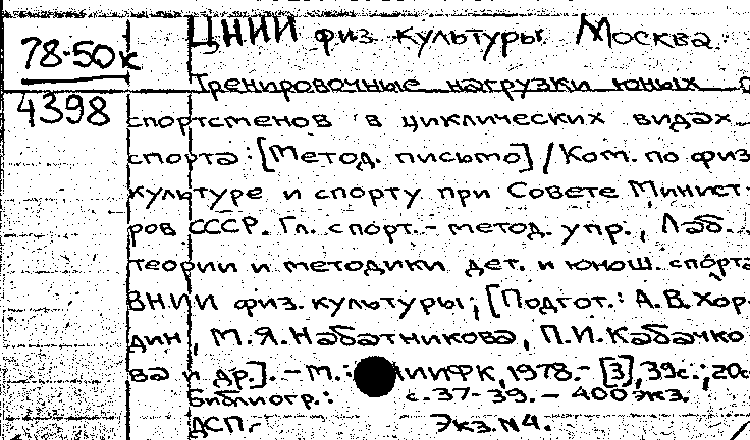 78-50к
4398
ЦНИИ физ. культуры. Москва.
Тренировочные нагрузки юных
спортсменов в циклических видах
спорта: [Метод. письмо] / Ком. по физ.
культуре и спорту при Совете Минист-
ров СССР. Гл. спорт.-метод. упр., Лаб.
теории и методики дет. и юнош. спорта
ВНИИ физ. культуры; [Подгот.: А.В. Хор
дин, М.Я. Набатникова, П.И. Кабачко
ва и др.]. - М.: ИИФК, 1978. - [3], 39с.; 20с
Библиогр.: с. 37-39. - 400 экз.
ДСП. Экз. N4.